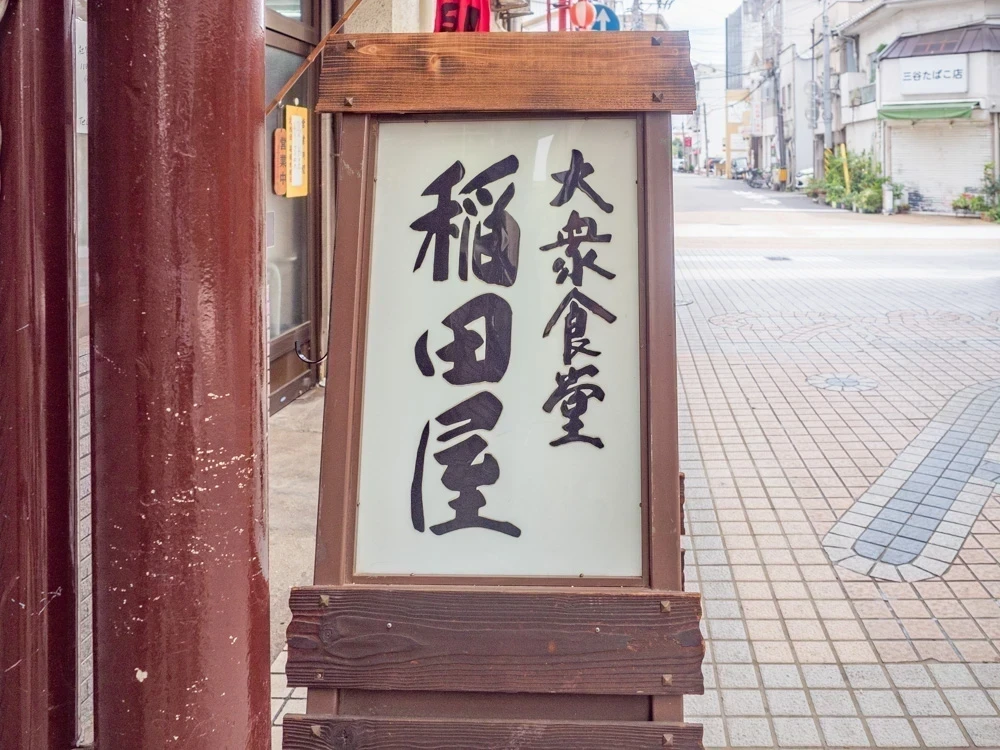 大衆食堂
稲田屋
営業中
三谷たばこ店